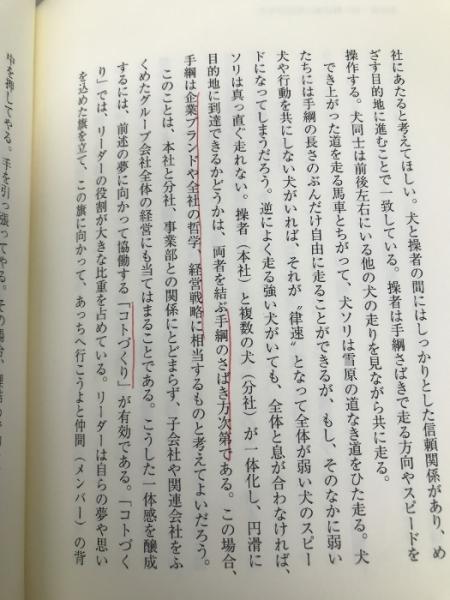 社にあたると考えてほしい。犬と操者の間にはしっかりとした信頼関係があり、め
ざす目的地に進むことで一致している。操者は手綱さばきで走る方向やスピードを
操作する。犬同士は前後左右にいる他の犬の走りを見ながら共に走る。
でき上がった道を走る馬車とちがって、犬ソリは雪原の道なき道をひた走る。犬
たちには手綱の長さのぶんだけ自由に走ることができるが、もし、そのなかに弱い
犬や行動を共にしない犬がいれば、それが〝律速〟となって全体が弱い犬のスピー
ドになってしまうだろう。逆によく走る強い犬がいても、全体と息が合わなければ、
ソリは真っ直ぐ走れない。操者（本社）と複数の犬（分社）が一体化し、円滑に
目的地に到達できるかどうかは、両者を結ぶ手綱のさばき方次第である。この場合、
手綱は企業ブランドや全社の哲学、経営戦略に相当するものと考えてよいだろう。
このことは、本社と分社、事業部との関係にとどまらず、子会社や関連会社をふ
くめたグループ会社全体の経営にも当てはまることである。こうした一体感を醸成
するには、前述の夢に向かって協働する「コトづくり」が有効である。「コトづく
り」では、リーダーの役割が大きな比重を占めている。リーダーは自らの夢や思い
を込めた旗を立て、この旗に向かって、あっちへ行こうよと仲間（メンバー）の背
中を押してやる。手を引っ張ってやる。その場合、